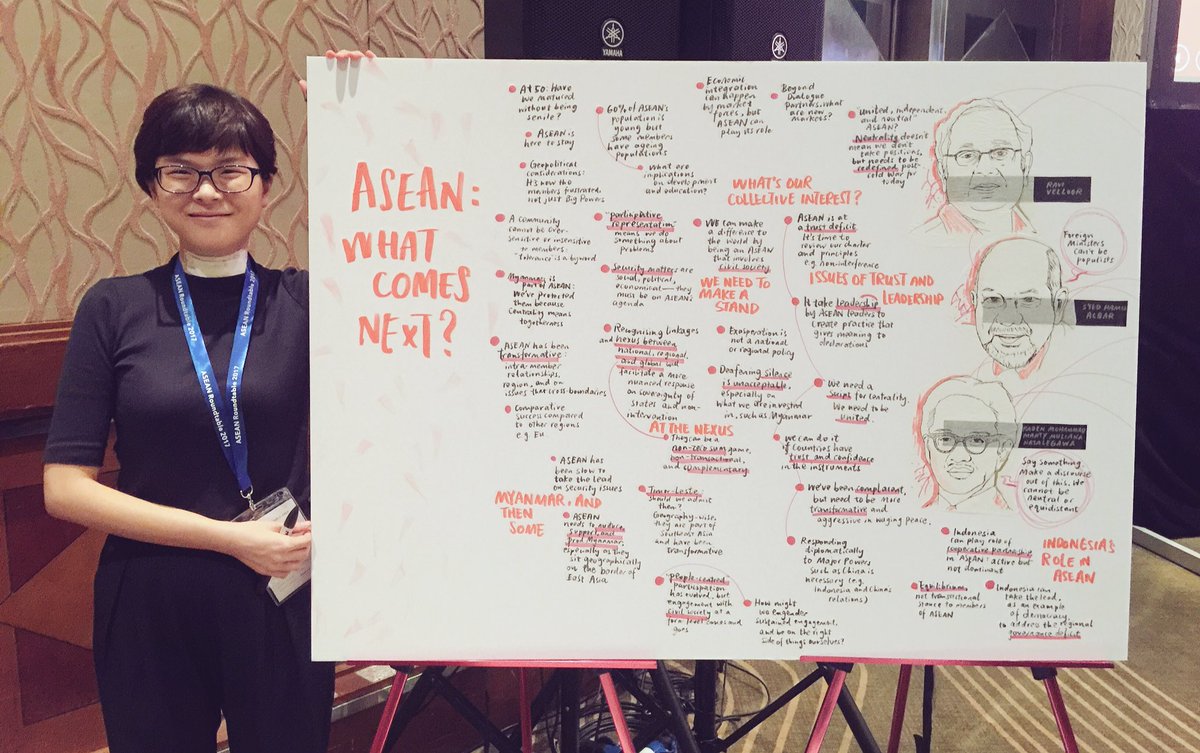 YAMAHA
ASEAN Roundtable 2017
ASEAN Roundtable 2017
ASEAN:
WHAT
COMES
NEXT?
At 50: Have
we matured
without being
senile?
ASEAN is
here to stay
Geopolitical
considerations:
It's now the
members frustrated,
not just Big Powers
60% of ASEAN's
population is
young but
some members
have ageing
populations
What are
implications
on development
and education?
Economic
integration
can happen
by market
forces, but
ASEAN can
play its role
Beyond
Dialogue
partners, what
are new
markets?
"United, independent
and neutral"
ASEAN?
Neutrality doesn't
mean we don't
take positions,
but needs to be
redefined, post-
cold war for
today
RAVI
VELLOOR
WHAT'S OUR
COLLECTIVE INTEREST?
A community
cannot be over-
sensitive or insensitive
to members
"Tolerance" is a byword
Myanmar is
part of ASEAN:
We've protected
them because
centrality means
togetherness
ASEAN has been
transformative:
intra-member
relationships,
region, and on
issues that cross boundaries
Comparative
success compared
to other regions
e.g. EU
"participative
representation"
means we do
something about
problems
Security matters are
social, political,
economical — they
must be on ASEAN's
agenda
Recognising linkages
and nexus between
national, regional,
and global will
facilitate a more
nuanced response
on sovereignty of
states and non-
intervention
AT THE NEXUS
They can be a
non-zero sum game,
non-transactional,
and complementary
We can make
a difference to
the world by
being an ASEAN
that involves
civil society
WE NEED TO
MAKE A
STAND
Exasperation is
not a national
or regional policy
Deafening silence
is unacceptable,
especially on
what we are invested
in, such as Myanmar
ASEAN is at
a trust deficit
It's time to
review our charter
and principles
e.g. non-interference
ISSUES OF TRUST AND
LEADERSHIP
It takes leadership
by ASEAN leaders to
create practice that
gives meaning to
declarations
We need a
script for centrality.
We need to be
united.
Foreign
Ministers
can't be
populists
SYED HAMID
ALBAR
We can do it
if countries have
trust and confidence
in the instruments
RADEN MOHAMMAD
MARTY MULIANA
NATALEGAWA
Say something
Make a discourse
out of this. We
cannot be
neutral or
equidistant
MYANMAR, AND
THEN
SOME
ASEAN has
been slow to
take the lead
on security issues
ASEAN
needs to
support, and
prod Myanmar,
especially as they
sit geographically
on the border of
East Asia
Timor-Leste:
should we admit
them?
Geography-wise,
they are part of
Southeast Asia
and have been
transformative
"people-centred"
participation
has evolved, but
engagement with
civil society at a
level comes and
goes
How might
we engender
sustained engagement,
and be on the right
side of things ourselves?
We've been complacent,
but need to be more
transformative and
aggressive in waging peace.
Responding
diplomatically
to Major Powers
such as China is
necessary (e.g.
Indonesia and China
relations)
Indonesia
can play role of
cooperative partnership
in ASEAN: active but
not dominant
INDONESIA'S
ROLE IN
ASEAN
Equilibrium,
not transactional
stance to members
of ASEAN
Indonesia can
take the lead,
as an example
of democracy,
to address the regional
governance deficit